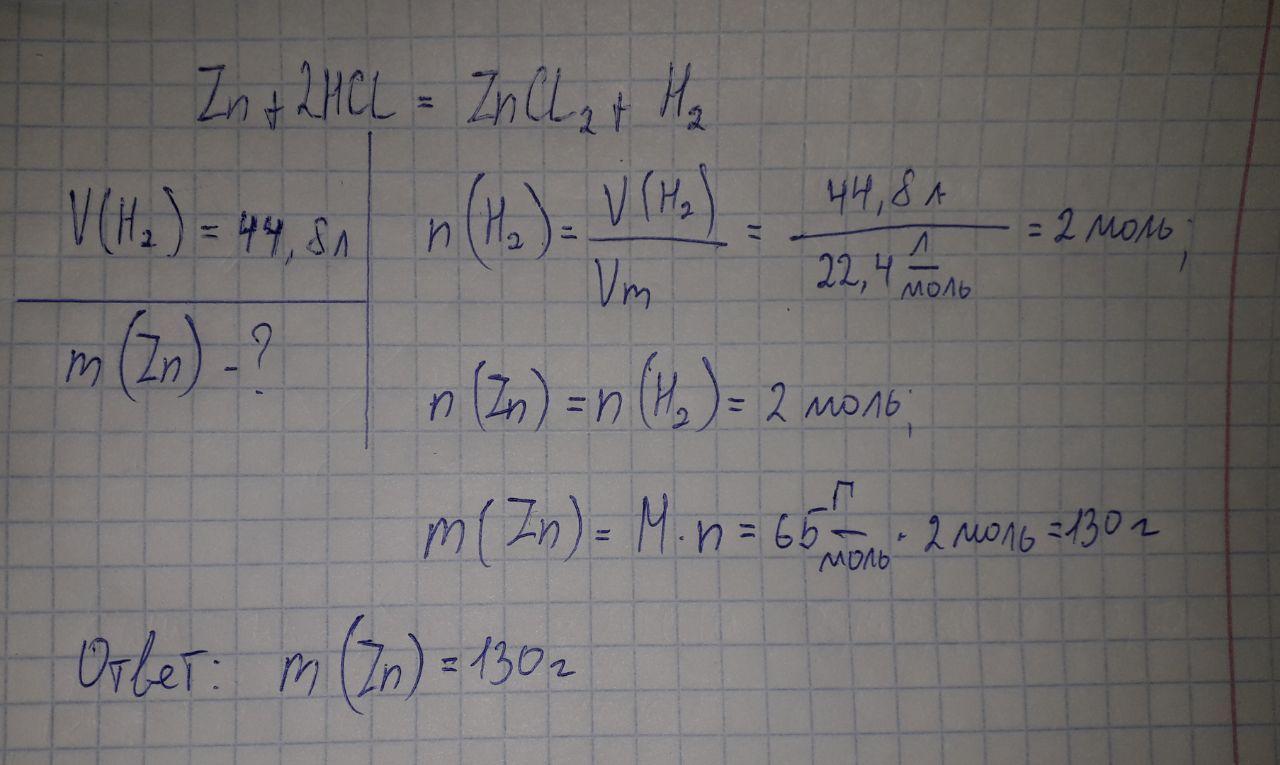 Zn + 2HCl = ZnCl₂ + H₂
V(H₂) = 44,8л
m(Zn) - ?
n(H₂) = V(H₂)/Vm = 44,8л/22,4 л/моль = 2 моль;
n(Zn) = n(H₂) = 2 моль;
m(Zn) = M · n = 65 г/моль · 2 моль = 130 г
Ответ: m(Zn) = 130 г